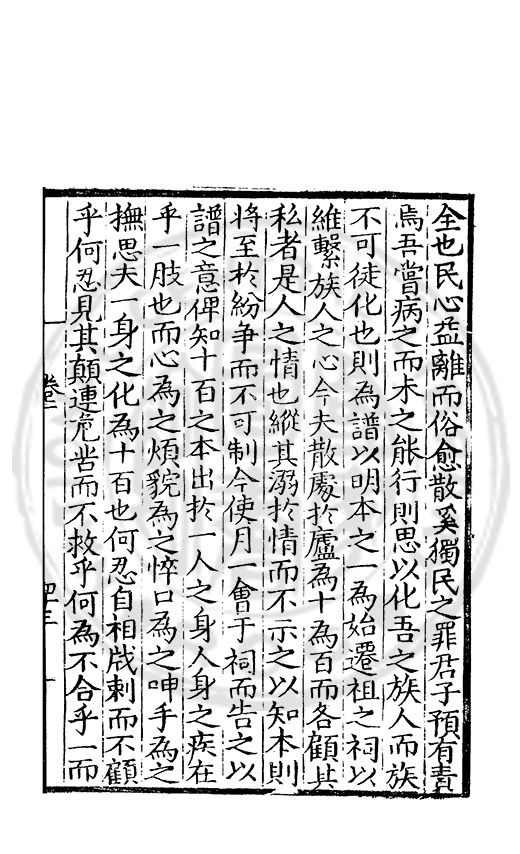 全也民心益離而俗愈散奚獨民之罪君子預有責
焉吾嘗病之而未之能行則思以化吾之族人而族
不可徒化也則為譜以明本之一為始遷祖之祠以
維繫族人之心今夫散處於廬為十為百而各顧其
私者是人之情也縱其溺於情而不示之以知本則
將至於紛爭而不可制今使月一會于祠而告之以
譜之意俾知十百之本出於一人之身人身之疾在
乎一肢也而心為之煩貌為之悴口為之呻手為之
撫思夫一身之化為十百也何忍自相戕刺而不顧
乎何忍見其顛連危苦而不救乎何為不合乎一而
卷三
四三